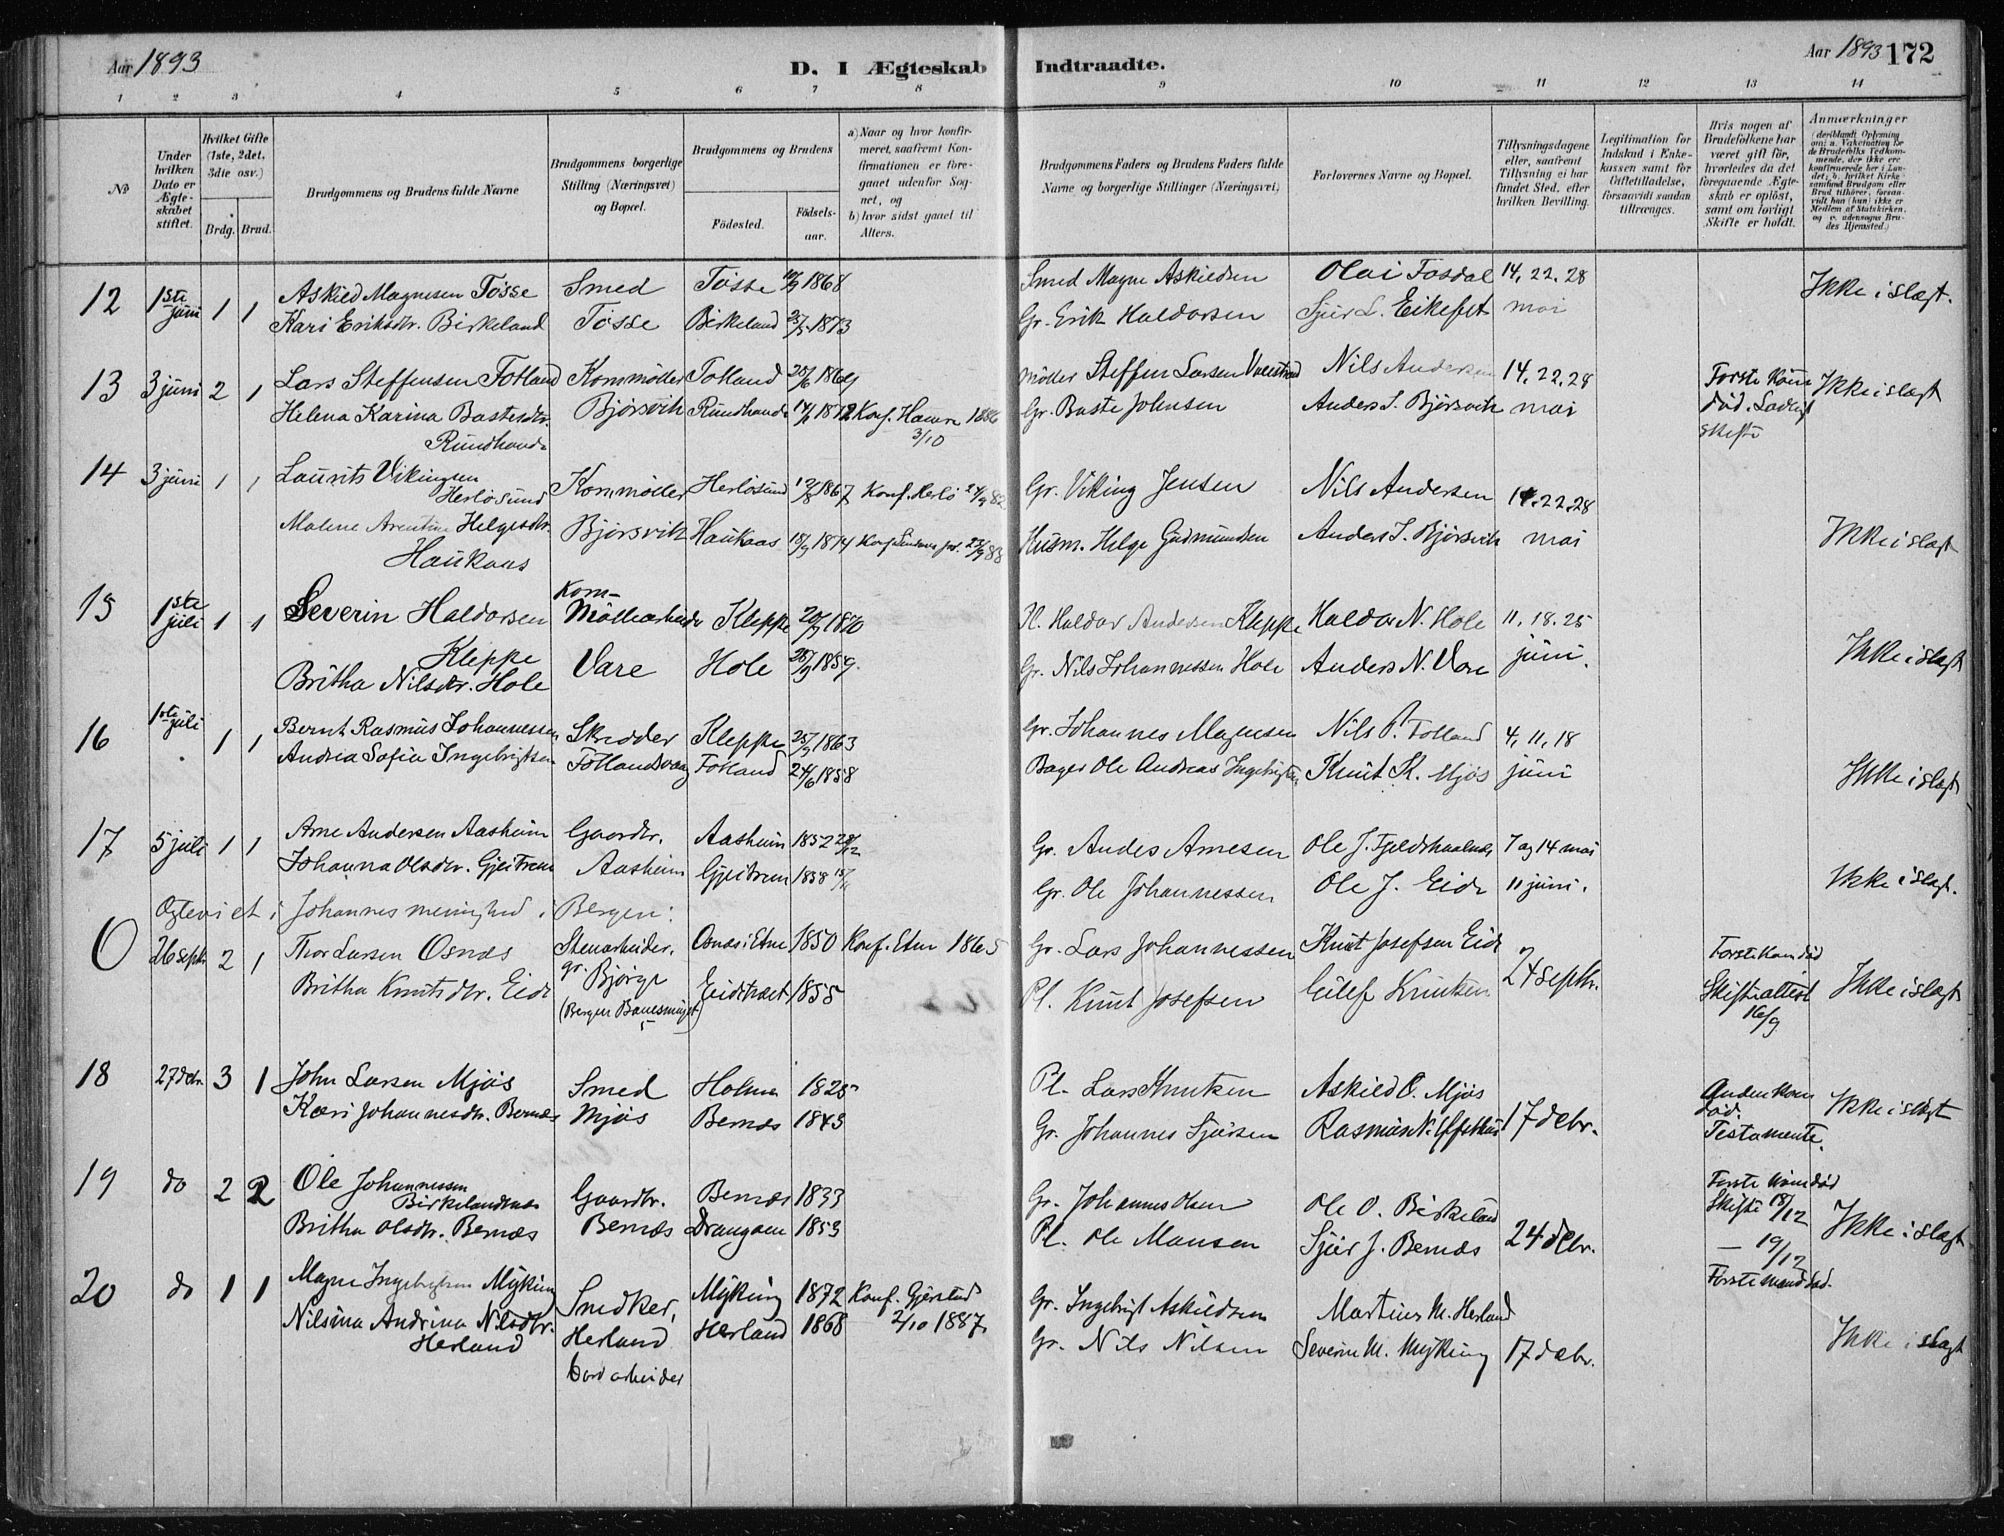 Aar 1893
D. I Ægteskab Indtraadte.
Aar 1893 172
1 2 3 4 5 6 7 8 9 10 11 12 13 14
No
Under hvilken Dato er Ægteskabet stiftet.
Hvilket Gifte (1ste, 2det, 3die osv.)
Brdg. Brud.
Brudgommens og Brudens fulde Navne
Brudgommens borgerlige Stilling (Næringsvei) og Bopæl.
Brudgommens og Brudens
Fødested. Fødselsaar.
a) Naar og hvor konfirmeret, saafremt Konfirmationen er foregaaet udenfor Sognet, og
b) hvor sidst gaaet til Alters.
Brudgommens Faders og Brudens Faders fulde Navne og borgerlige Stillinger (Næringsvei)
Forlovernes Navne og Bopæl.
Tillysningsdagene eller, saafremt Tillysning ei har fundet Sted, efter hvilken Bevilling.
Legitimation for Indskud i Enkekassen samt for Giftetilladelse, forsaavidt saadan tiltrænges.
Hvis nogen af Brudefolkene har været gift før, hvorledes da det foregaaende Ægteskab er opløst, samt om lovligt Skifte er holdt.
Anmærkninger
12 1ste juni 1 1 Askild Magnesen Tösse Smed Tösse 1868 Smed Magne Askildsen Olai Fosdal 14, 22, 28 Ikke i slægt.
Kari Eriksdtr. Birkeland Tösse Birkeland 1873 Gr. Erik Haldorsen Sjur L. Eikefet mai
13 3 juni 2 1 Lars Steffensen Totland Kornmöller Totland 1864 Möller Steffen Larsen Nils Andersen 14, 22, 28 Første Kone Ikke i slægt
Helena Karina Bastesdtr. Bjørsvik Rundhovde 1872 Konf. Hamre 1886 Gr. Baste Johnsen Anders S. Bjørsvik mai död.
Rundhovde 3/10 Skifte
14 3 juni 1 1 Laurits Vikingsen Kornmöller Herløsund 12/8 1867 Konf. Herlö Gr. Viking Jensen Nils Andersen 14, 22, 28
Herløsund
Malene Arentine Helgesdtr. Bjørsvik Haukaas 18/9 1874 Konf. Husm. Helge Gudmundsen Anders S. Bjørsvik mai Ikke i slægt
Haukaas
15 1ste juli 1 1 Severin Haldorsen Korn- Möllearbeider Kleppe 1870 Pl. Haldor Andersen Kleppe Haldor N. Hole 11, 18, 25
Kleppe
Britha Nilsdtr. Hole Vare Hole 1859. Gr. Nils Johannessen Hole Anders N. Vare juni. Ikke i slægt
16 1ste juli 1 1 Bernt Rasmus Johannessen Skredder Kleppe 1863 Gr. Johannes Magnesen Nils P. Totland 4, 11, 18
Andrea Sofia Ingebrigtsen Totlandsvaag Totland 24/6 1858 Bager Ole Andreas Ingebrigtsen Knut K. Mjös juni Ikke i slægt
17 5 juli 1 1 Arne Andersen Aasheim Gaardbr. Aasheim 1852 Gr. Anders Arnesen Ole J. 7 og 14 mai
Johanna Olsdtr. Gjeitrem Aasheim Gjeitrem 1858 Gr. Ole Johannessen Ole J. Eide 11 juni. Ikke i slægt.
Ægteviet i Johannes menighed i Bergen:
0 26 septbr. 2 1 Thor Larsen Osnæs Stenarbeider, Osnæs i Etne 1850 Konf. Etne 1865 Gr. Lars Johannessen Knut Josefsen Eide 24 septbr. Første kone död
Britha Knutsdtr. Eide gr. Bjørge Eidetræet 1855 Pl. Knut Josefsen Eilef Knutsen Skifteattest Ikke i slægt
16/9
18 27 debr. 3 1 John Larsen Mjös Smed Holme 1825 Pl. Lars Knutsen Askild O. Mjös Anden kone död. Ikke i slægt
Kari Johannesdtr. Bernæs Mjös Bernæs 1843 Gr. Johannes Sjursen Rasmus N. 17 debr. Testamente.
19 do 2 2 Ole Johannessen Gaardbr. Bernæs 1833 Gr. Johannes Olsen Ole O. Birkeland Første kone död
Birkelandnes Skifte 18/12
Britha Olsdtr. Bernæs Bernæs Drangøen 1853 Pl. Ole Monsen Sjur J. Bernæs 24 debr. – 19/12 Ikke i slægt
Første mand död.
20 do 1 1 Magne Ingebrigtsen Myking Snedker, Myking 1872 Konf. Gjerstad Gr. Ingebrigt Askildsen Martinus M. Herland
Nilsina Andrina Nilsdtr. Herland Herland 1868 2/10 1887. Gr. Nils Nilsen Severin M. Myking 17 debr. Ikke i slægt
Herland